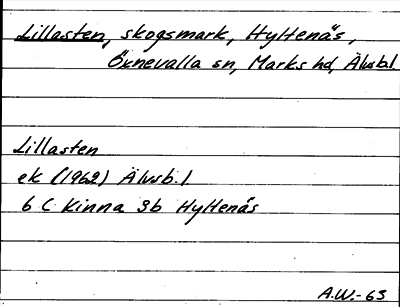 Lillasten, skogsmark, Hyltenäs,
Öxnevalla sn, Marks hd, Älvsb.l.
Lillasten
ek (1962) Älvsb.l.
6 C Kinna 3b Hyltenäs
A.W.-63